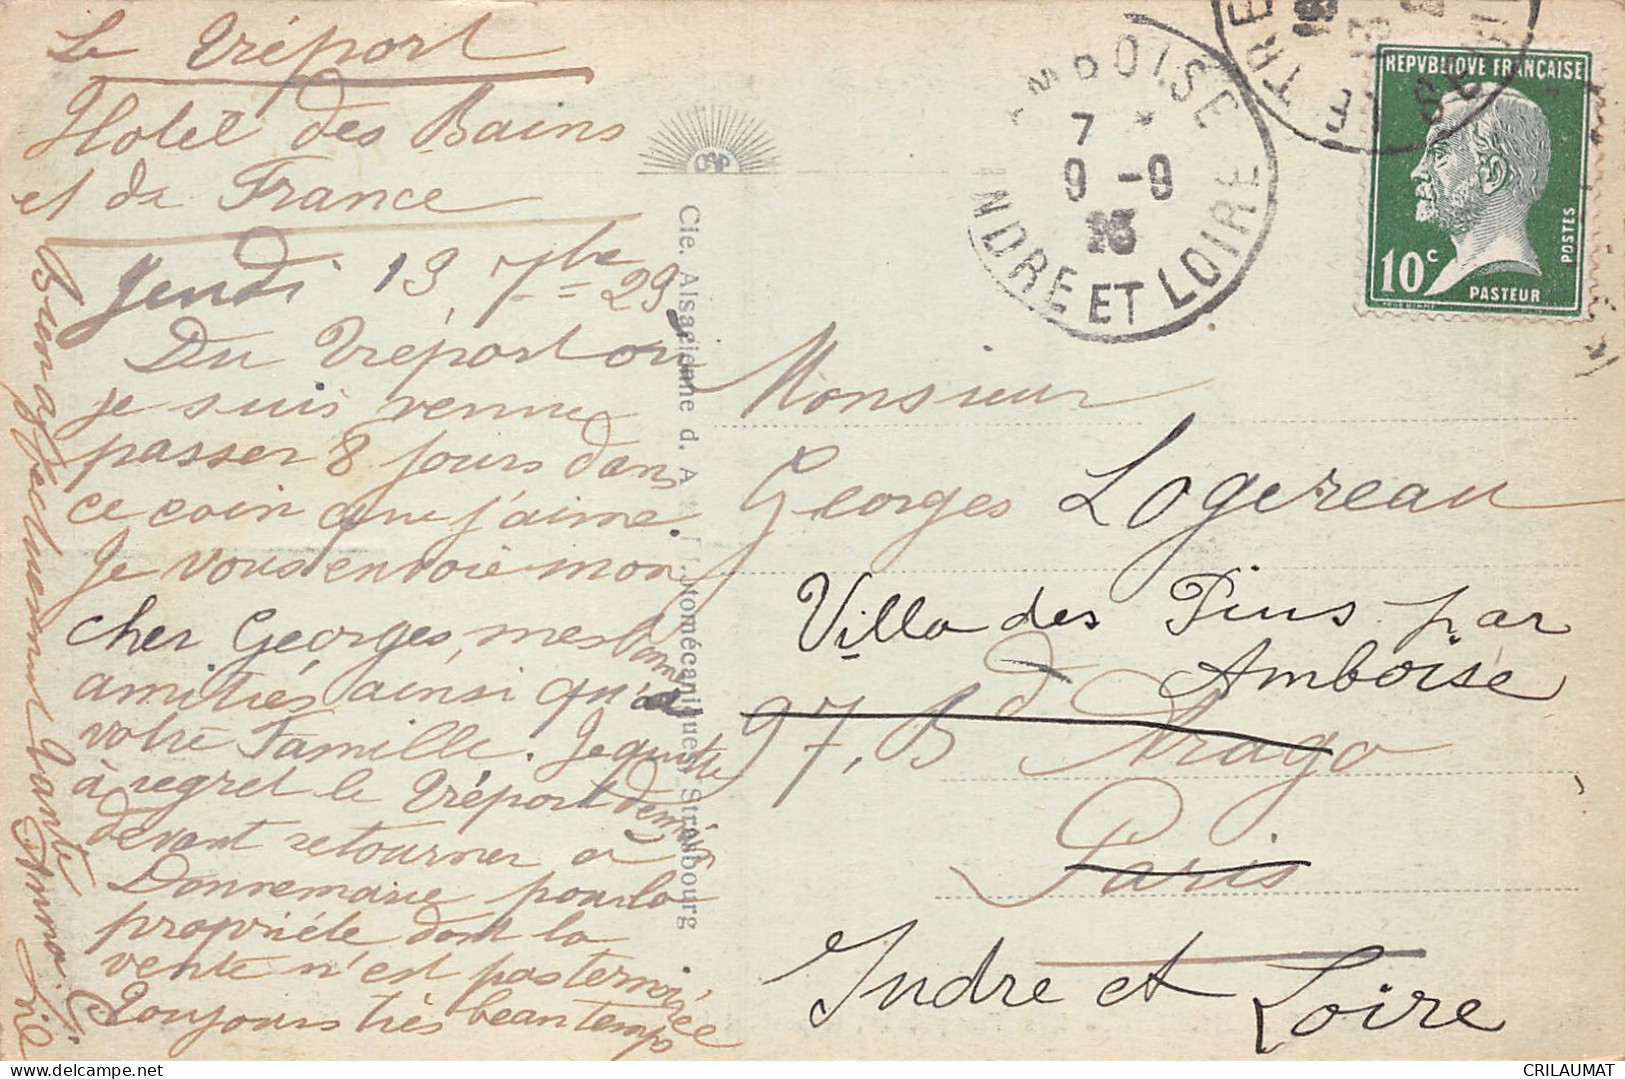 Le Tréport
Hotel des Bains
et de France
Jendi 13 7bre 23
Du Tréport où
je suis venue
passer 8 jours dans
ce coin que j'aime.
Je vous envoie mon
cher Georges, mes bonnes
amitiés ainsi qu'à
votre Famille. Je quitte
à regret le Tréport demain
devant retourner a
Donnemarie pour la
propriéte dont la
vente n'est pas terminée
Toujours très beau temps
Bien affectueusement Tante Anna
Cie. Alsacienne d. A Photomécaniques, Strasbourg
AMBOISE
7 *
9 -9
23
INDRE ET LOIRE
REPVBLIQVE FRANÇAISE
POSTES
10c
PASTEUR
Monsieur
Georges Logereau
Villa des Pins par
Amboise
97, Bd Arago
Paris
Indre et Loire
CRILAUMAT